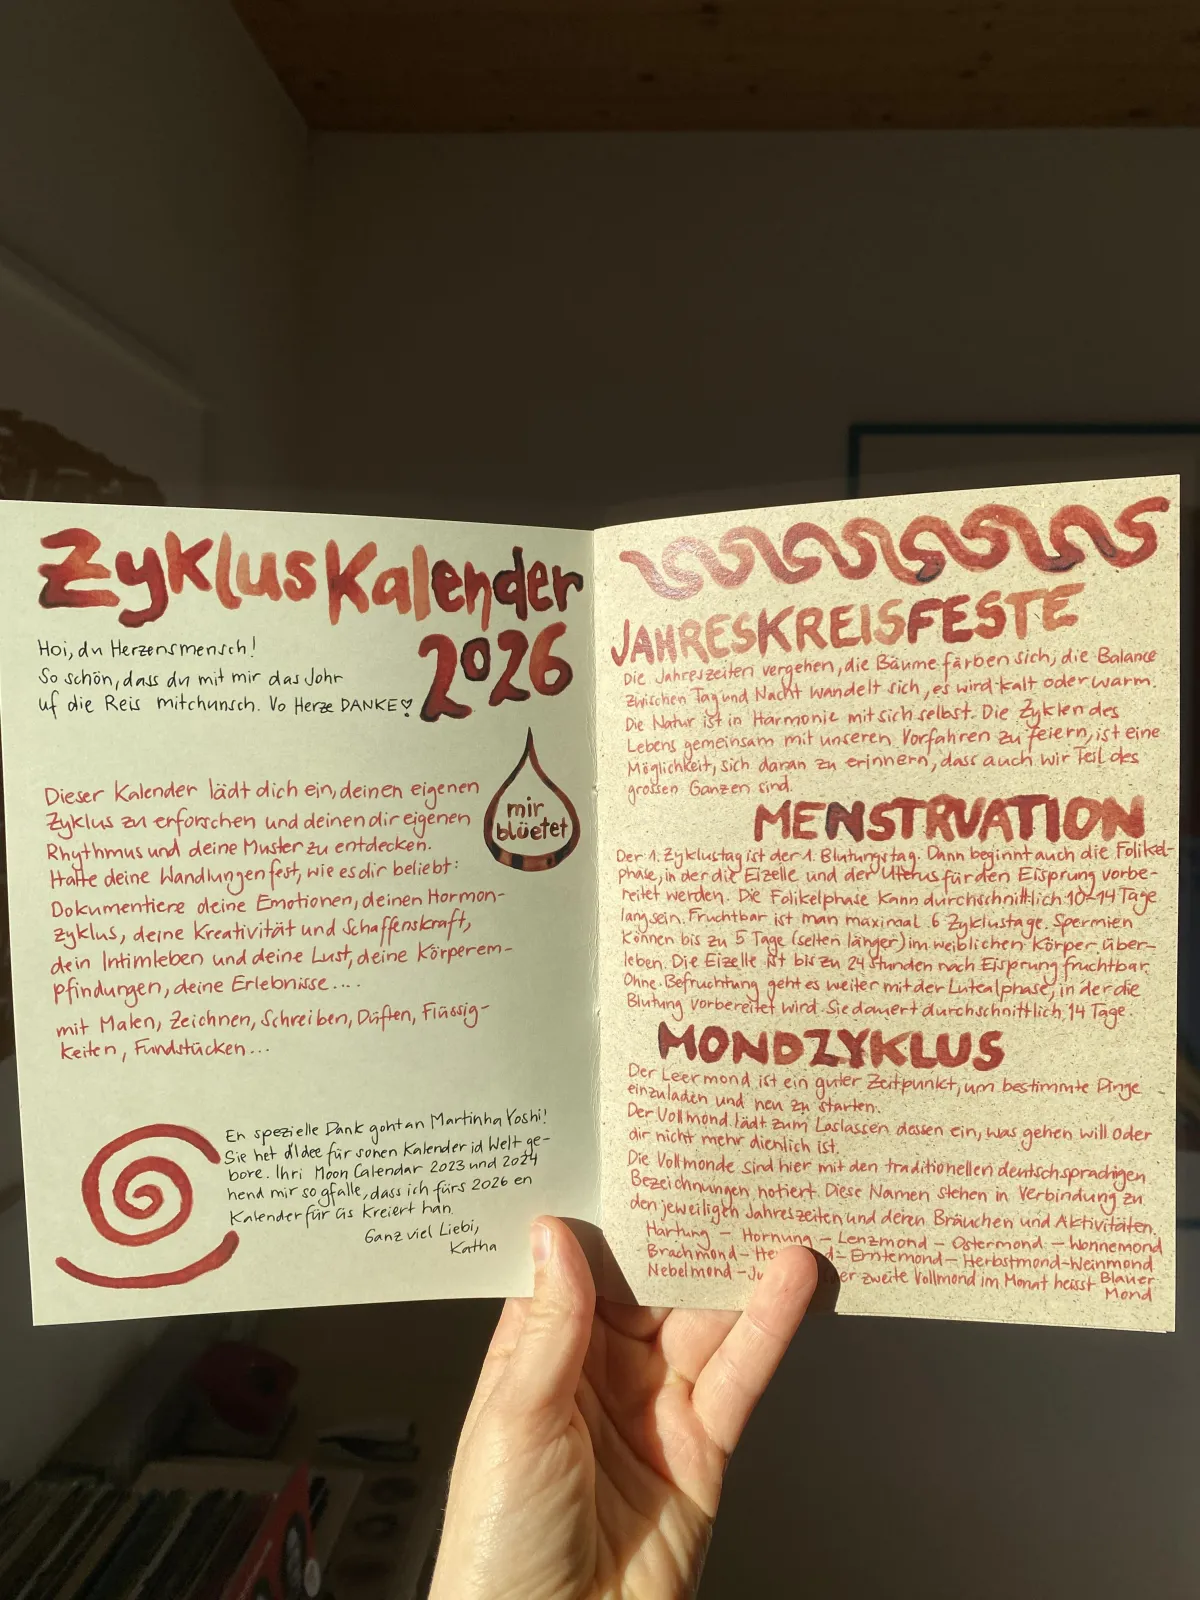 ZyklusKalender
2026
Hoi, du Herzensmensch!
So schön, dass du mit mir das Johr
uf die Reis mitchunsch. Vo Herze DANKE♡
mir
blüetet
Dieser Kalender lädt dich ein, deinen eigenen
Zyklus zu erforschen und deinen dir eigenen
Rhythmus und deine Muster zu entdecken.
Halte deine Wandlungen fest, wie es dir beliebt:
Dokumentiere deine Emotionen, deinen Hormon-
zyklus, deine Kreativität und Schaffenskraft,
dein Intimleben und deine Lust, deine Körperem-
pfindungen, deine Erlebnisse....
mit Malen, Zeichnen, Schreiben, Düften, Flüssig-
keiten, Fundstücken...
En spezielle Dank goht an Martinha Yoshi!
Sie het d'Idee für sonen Kalender id Welt ge-
bore. Ihri Moon Calendar 2023 und 2024
hend mir so gfalle, dass ich fürs 2026 en
Kalender für üs kreiert han.
Ganz viel Liebi,
Katha
JAHRESKREISFESTE
Die Jahreszeiten vergehen, die Bäume färben sich, die Balance
zwischen Tag und Nacht wandelt sich, es wird kalt oder warm.
Die Natur ist in Harmonie mit sich selbst. Die Zyklen des
Lebens gemeinsam mit unseren Vorfahren zu feiern, ist eine
Möglichkeit, sich daran zu erinnern, dass auch wir Teil des
grossen Ganzen sind.
MENSTRUATION
Der 1. Zyklustag ist der 1. Blutungstag. Dann beginnt auch die Folikel-
phase, in der die Eizelle und der Uterus für den Eisprung vorbe-
reitet werden. Die Folikelphase kann durchschnittlich 10-14 Tage
lang sein. Fruchtbar ist man maximal 6 Zyklustage. Spermien
können bis zu 5 Tage (selten länger) im weiblichen Körper über-
leben. Die Eizelle ist bis zu 24 Stunden nach Eisprung fruchtbar.
Ohne Befruchtung geht es weiter mit der Lutealphase, in der die
Blutung vorbereitet wird. Sie dauert durchschnittlich 14 Tage.
MONDZYKLUS
Der Leermond ist ein guter Zeitpunkt, um bestimmte Dinge
einzuladen und neu zu starten.
Der Vollmond lädt zum Loslassen dessen ein, was gehen will oder
dir nicht mehr dienlich ist.
Die Vollmonde sind hier mit den traditionellen deutschsprachigen
Bezeichnungen notiert. Diese Namen stehen in Verbindung zu
den jeweiligen Jahreszeiten und deren Bräuchen und Aktivitäten.
Hartung - Hornung - Lenzmond - Ostermond - Wonnemond
Brachmond - - Erntemond - Herbstmond - Weinmond
Nebelmond - zweite Vollmond im Monat heisst Blauer
Mond